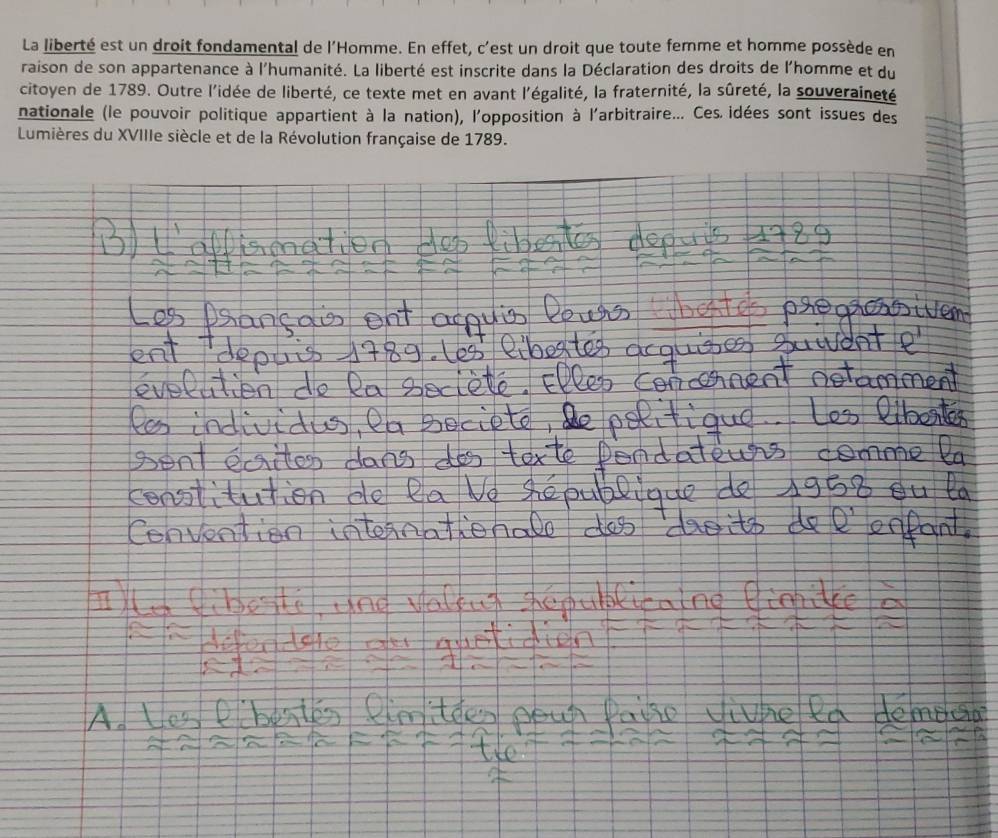 La liberté est un droit fondamental de l'Homme. En effet, c'est un droit que toute femme et homme possède en
raison de son appartenance à l'humanité. La liberté est inscrite dans la Déclaration des droits de l'homme et du
citoyen de 1789. Outre l'idée de liberté, ce texte met en avant l'égalité, la fraternité, la sûreté, la souveraineté
nationale (le pouvoir politique appartient à la nation), l'opposition à l'arbitraire... Ces idées sont issues des
Lumières du XVIIIe siècle et de la Révolution française de 1789.
B) L'affirmation des libertés depuis 1789
Les français ont acquis leurs libertés progressivem
ent depuis 1789. les libertés acquises suivent l'
évolution de la société. Elles concernent notamment
les individus, la société, le politique... Les libertés
sont écrites dans des texte fondateurs comme la
constitution de la Ve république de 1958 ou la
Convention internationale des droits de l'enfant.
II) La liberté, une valeur républicaine limitée à
défendre au quotidien.
A. Les libertés limitées pour faire vivre la démocra
tie